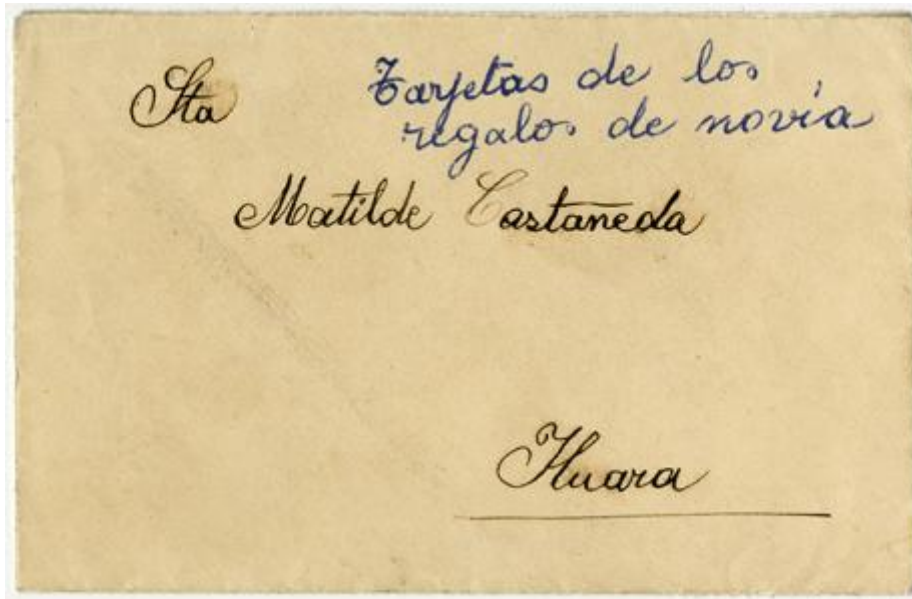 Sta
Tarjetas de los
regalos de novia
Matilde Castañeda
Huara